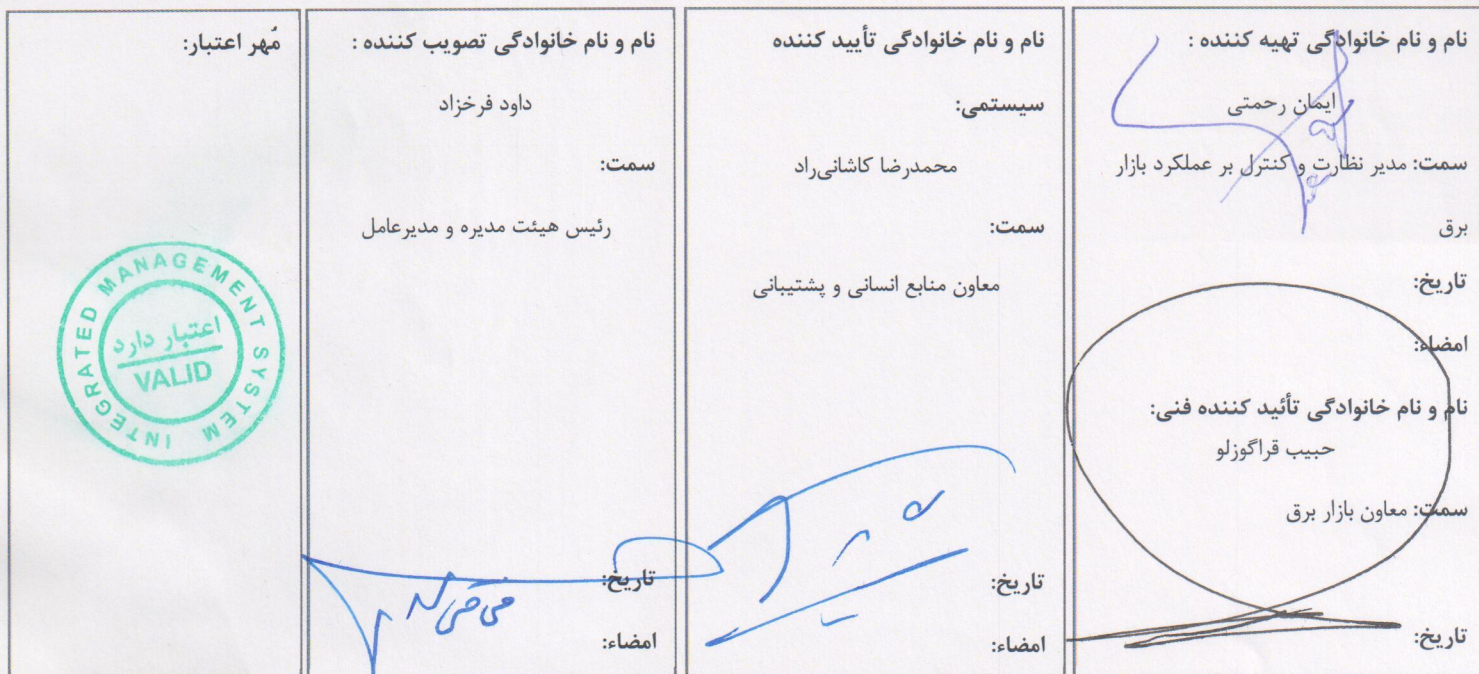 نام و نام خانوادگی تهیه کننده :
ایمان رحمتی
سمت: مدیر نظارت و کنترل بر عملکرد بازار
برق
تاریخ:
امضاء:
نام و نام خانوادگی تأئید کننده فنی:
حبیب قراگوزلو
سمت: معاون بازار برق
تاریخ:
نام و نام خانوادگی تأیید کننده
سیستمی:
محمدرضا کاشانی‌راد
سمت:
معاون منابع انسانی و پشتیبانی
تاریخ:
امضاء:
نام و نام خانوادگی تصویب کننده :
داود فرخزاد
سمت:
رئیس هیئت مدیره و مدیرعامل
تاریخ:
امضاء:
مُهر اعتبار:
INTEGRATED MANAGEMENT SYSTEM
اعتبار دارد
VALID